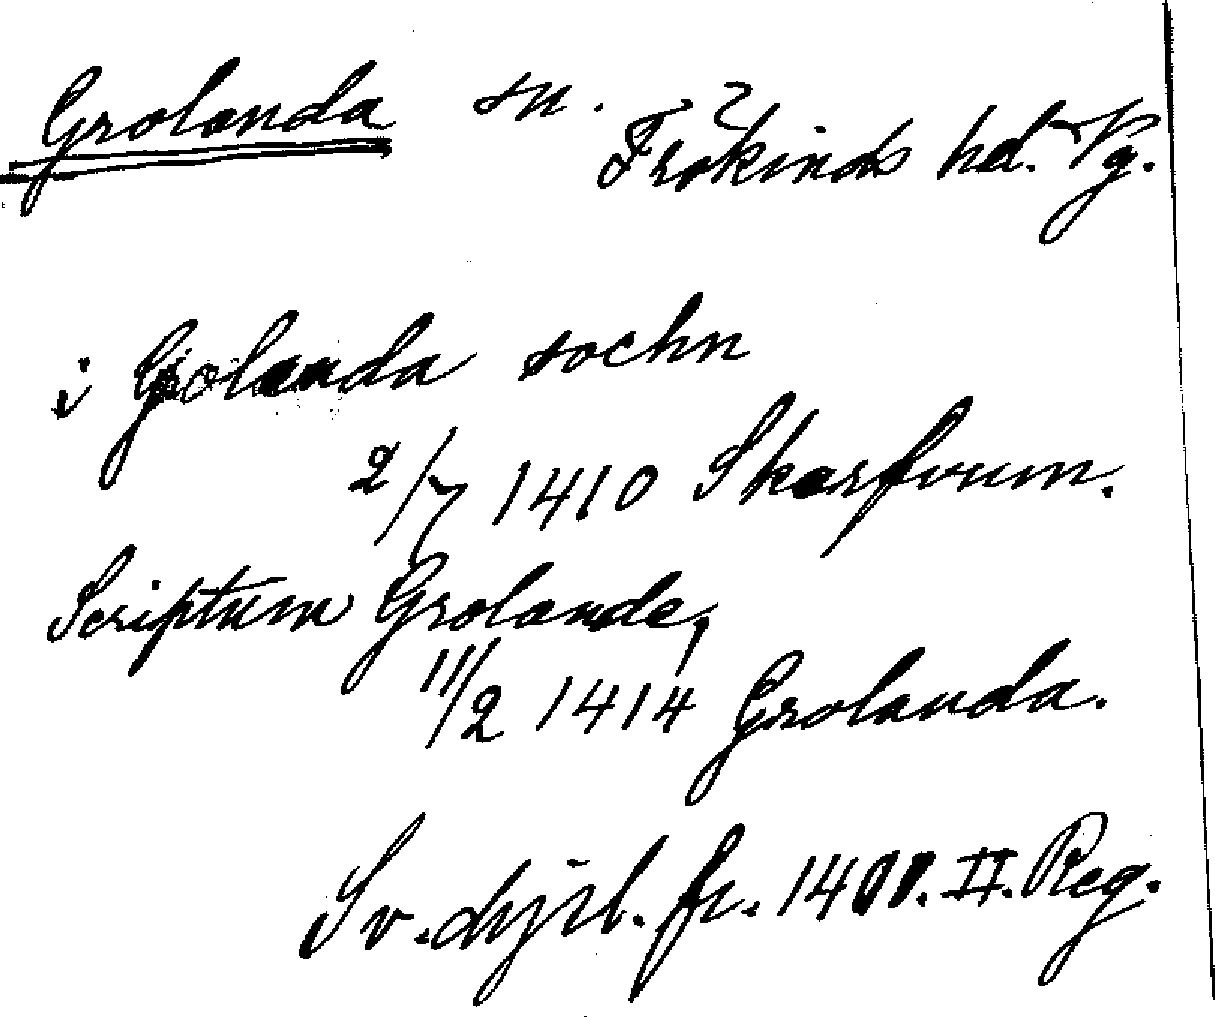 Grolanda sn.
Frökinds hd. Vg.
i Grolanda sochn
2/7 1410 Skarfvum.
Scriptum Grolande,
11/2 1414 Grolanda.
Sv. dipl. fr. 1401. II. Reg.